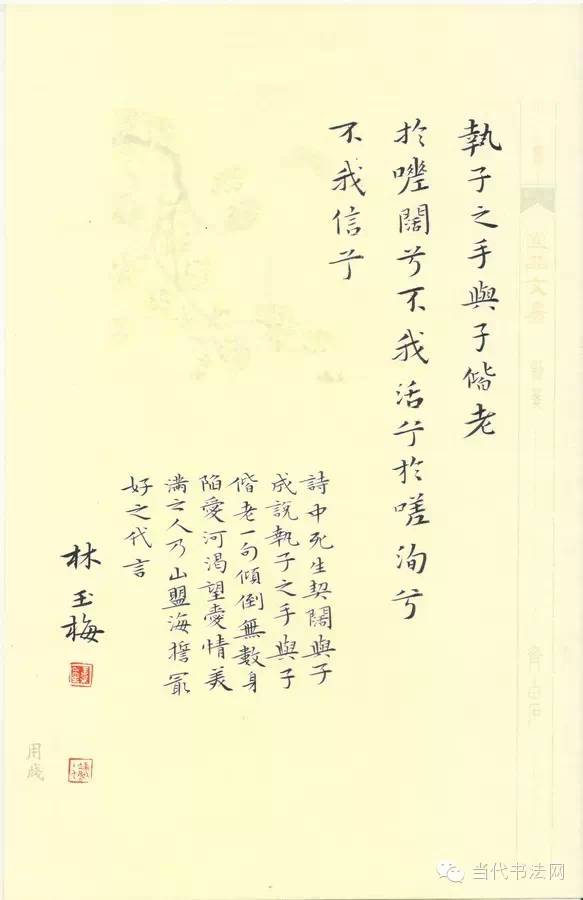 執子之手與子偕老
於嗟闊兮不我活兮於嗟洵兮
不我信兮
詩中死生契闊與子
成說執子之手與子
偕老一句傾倒無數身
陷愛河渴望愛情美
满之人乃山盟海誓冣
好之代言
林玉梅
用牋
当代书法网